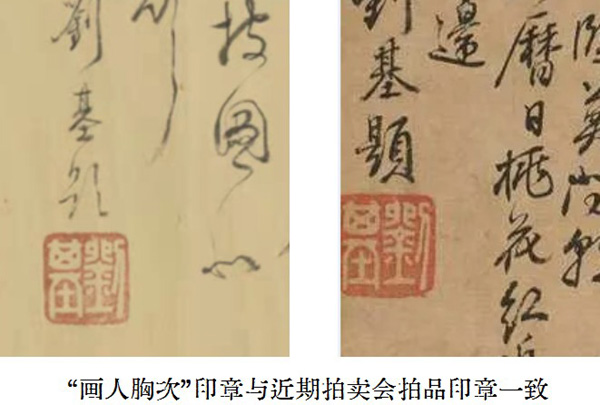 披圖
劉基題
劉基
曆日桃花紅
邊
劉基題
劉基
“画人胸次”印章与近期拍卖会拍品印章一致